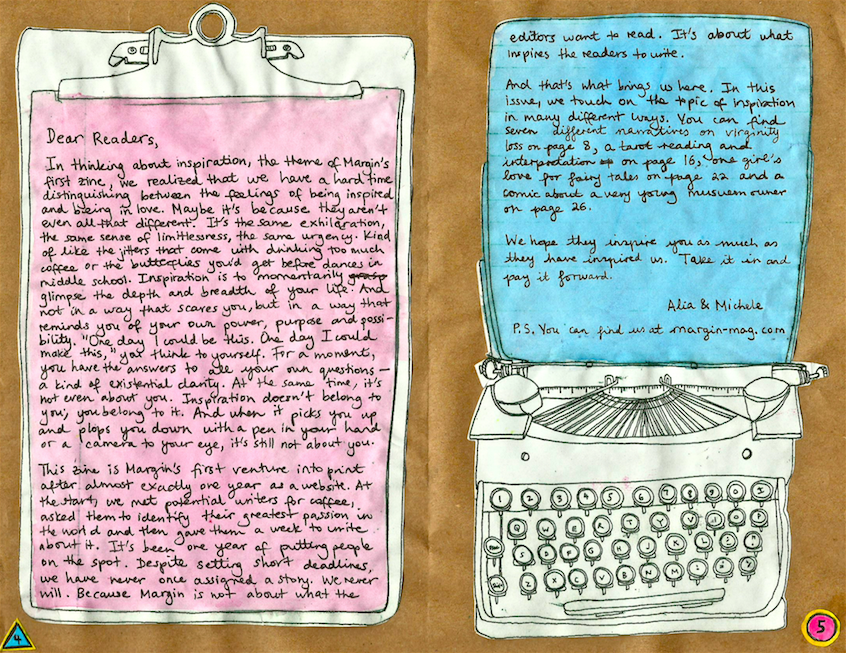 Dear Readers,
In thinking about inspiration, the theme of Margin's
first zine, we realized that we have a hard time
distinguishing between the feelings of being inspired
and being in love. Maybe it's because they aren't
even all that different. It's the same exhilaration,
the same sense of limitlessness, the same urgency. Kind
of like the jitters that come with drinking too much
coffee or the butterflies you'd get before dances in
middle school. Inspiration is to momentarily grasp
glimpse the depth and breadth of your life. And
not in a way that scares you, but in a way that
reminds you of your own power, purpose and possi-
bility. "One day I could be this. One day I could
make this," you think to yourself. For a moment,
you have the answers to all your own questions –
a kind of existential clarity. At the same time, it's
not even about you. Inspiration doesn't belong to
you; you belong to it. And when it picks you up
and plops you down with a pen in your hand
or a camera to your eye, it's still not about you.
This zine is Margin's first venture into print
after almost exactly one year as a website. At
the start, we met potential writers for coffee,
asked them to identify their greatest passion in
the world and then gave them a week to write
about it. It's been one year of putting people
on the spot. Despite setting short deadlines,
we have never once assigned a story. We never
will. Because Margin is not about what the
4
editors want to read. It's about what
inspires the readers to write.
And that's what brings us here. In this
issue, we touch on the topic of inspiration
in many different ways. You can find
seven different narratives on virginity
loss on page 8, a tarot reading and
interpretation on page 16, one girl's
love for fairy tales on page 22 and a
comic about a very young museum owner
on page 26.
We hope they inspire you as much as
they have inspired us. Take it in and
pay it forward.
Alia & Michele
P.S. You can find us at margin-mag.com
1 2 3 4 5 6 7 8 9 0
Q W E R T Y U I O P
S D F G H J K L
Z X C V B N M
5